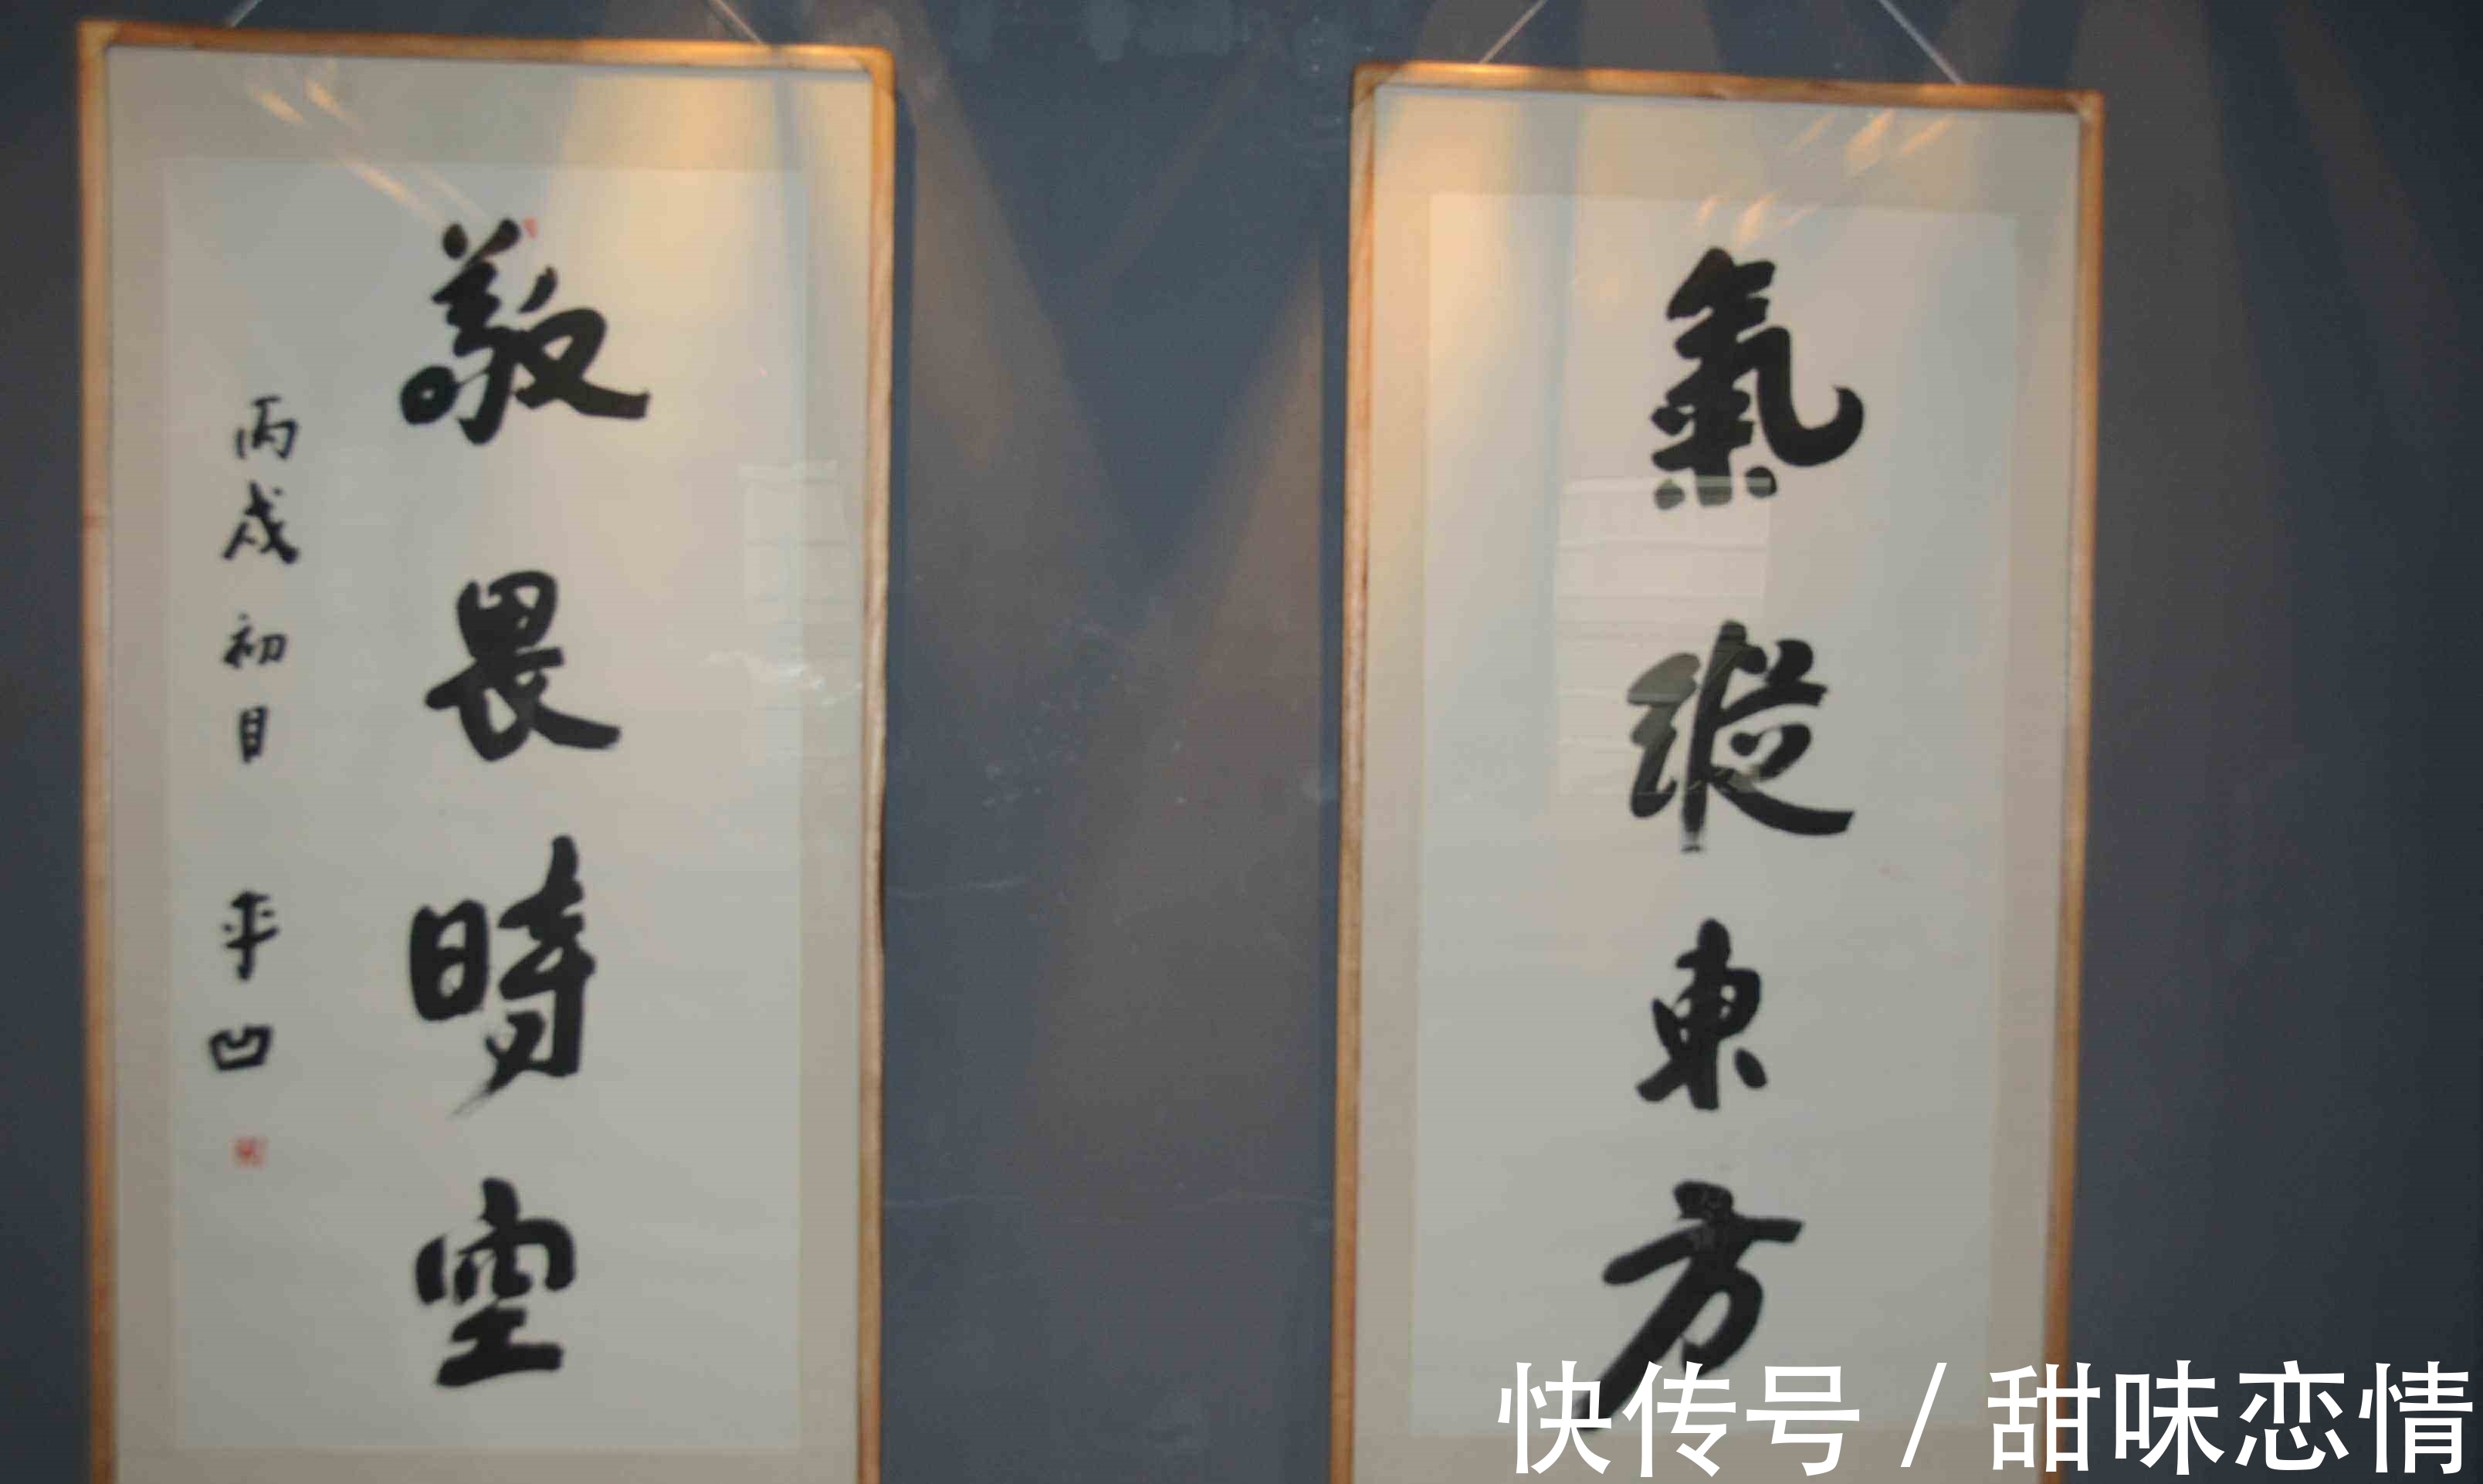 氣縱東方
敬畏時空
丙戌初目 平凹
快传号 / 甜味恋情